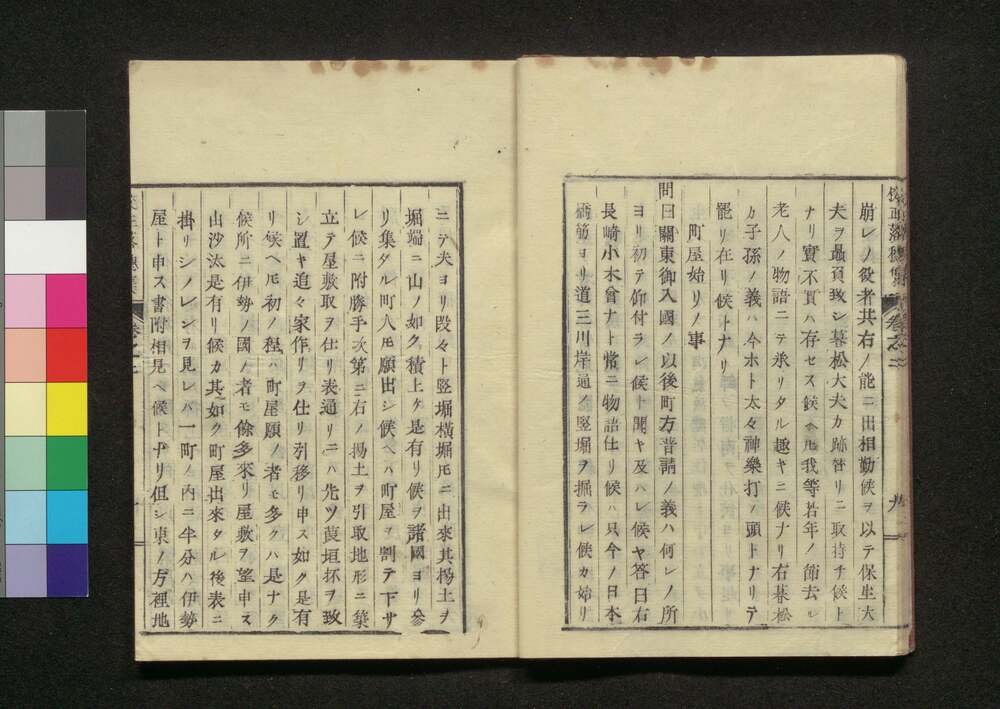 崩レノ役者共右ノ能ニ出相勤候ヲ以テ保生大
夫ヲ贔頁致シ暮松大夫カ跡皆リニ取持チ候ト
ナリ實不實ハ存セス候ヘ𪜈我等若年ノ節去ル
老人ノ物語ニテ承リタル趣キニ候ナリ右暮松
カ子孫ノ義ハ今ホト太々神樂打ノ頭トナリテ
罷リ在リ候トナリ
町屋始リノ事
問曰關東御入國ノ以後町方普請ノ義ハ何レノ所
ヨリ初テ仰付ラレ候ト聞キ及ハレ候ヤ答曰右
長崎小木曾ナト常ニ物語仕リ候ハ只今ノ日本
橋筋ヨリ道三川岸通ノ竪堀ヲ掘ラレ候カ始リ
ニテ夫ヨリ段々ト竪堀横堀𪜈ニ出來其揚土ヲ
堀端ニ山ノ如ク積上ケ是有リ候ヲ諸國ヨリ參
リ集タル町人𪜈願出シ候ヘハ町屋ヲ割テ下サ
レ候ニ附勝手次第ニ右ノ揚土ヲ引取地形ニ築
立テ屋敷取ヲ仕リ表通リニハ先ツ莨垣抔ヲ致
シ置キ追々家作リヲ仕リ引移リ申ス如ク是有
リ候ヘ𪜈初ノ程ハ町屋願ノ者モ多クハ是ナク
候所ニ伊勢ノ國ノ者モ餘多來リ屋敷ヲ望申ス
山沙汰是有リ候カ其如ク町屋出來タル後表ニ
掛リシノレンヲ見レハ一町ノ内ニ半分ハ伊勢
屋ト申ス書附相見ヘ候トナリ但シ東ノ方裡地